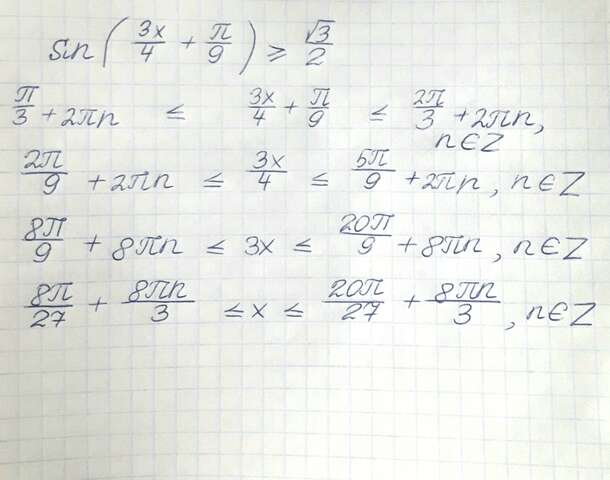 sin(3x/4 + π/9) ≥ √3/2
π/3 + 2πn ≤ 3x/4 + π/9 ≤ 2π/3 + 2πn, n∈Z
2π/9 + 2πn ≤ 3x/4 ≤ 5π/9 + 2πn, n∈Z
8π/9 + 8πn ≤ 3x ≤ 20π/9 + 8πn, n∈Z
8π/27 + 8πn/3 ≤ x ≤ 20π/27 + 8πn/3, n∈Z